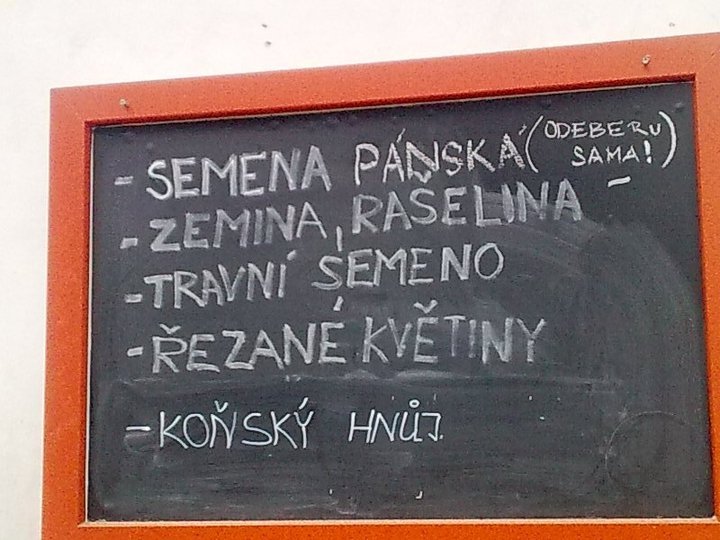 - SEMENA PÁNSKÁ (ODEBERU SAMA!)
- ZEMINA, RAŠELINA -
- TRAVNÍ SEMENO
- ŘEZANÉ KVĚTINY
- KOŇSKÝ HNŮJ.